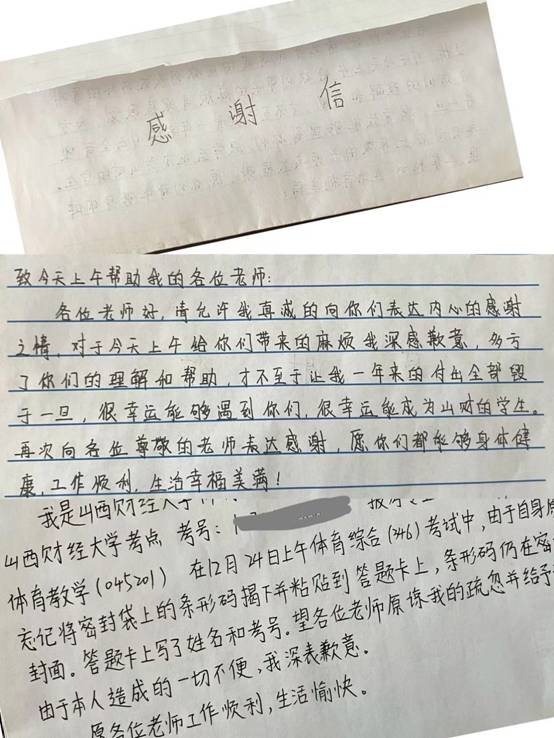 感谢信
致今天上午帮助我的各位老师:
各位老师好,请允许我真诚的向你们表达内心的感谢
之情,对于今天上午给你们带来的麻烦我深感歉意,多亏
了你们的理解和帮助,才不至于让我一年来的付出全部毁
于一旦,很幸运能够遇到你们,很幸运能成为山财的学生。
再次向各位尊敬的老师表达感谢,愿你们都能够身体健
康,工作顺利,生活幸福美满!
我是山西财经大学
山西财经大学考点 考号:
体育教学(045201) 在12月24日上午体育综合(346)考试中,由于自身
忘记将密封袋上的条形码揭下并粘贴到答题卡上,条形码仍在密
封面。答题卡上写了姓名和考号。望各位老师原谅我的疏忽并给予
由于本人造成的一切不便,我深表歉意。
愿各位老师工作顺利,生活愉快。